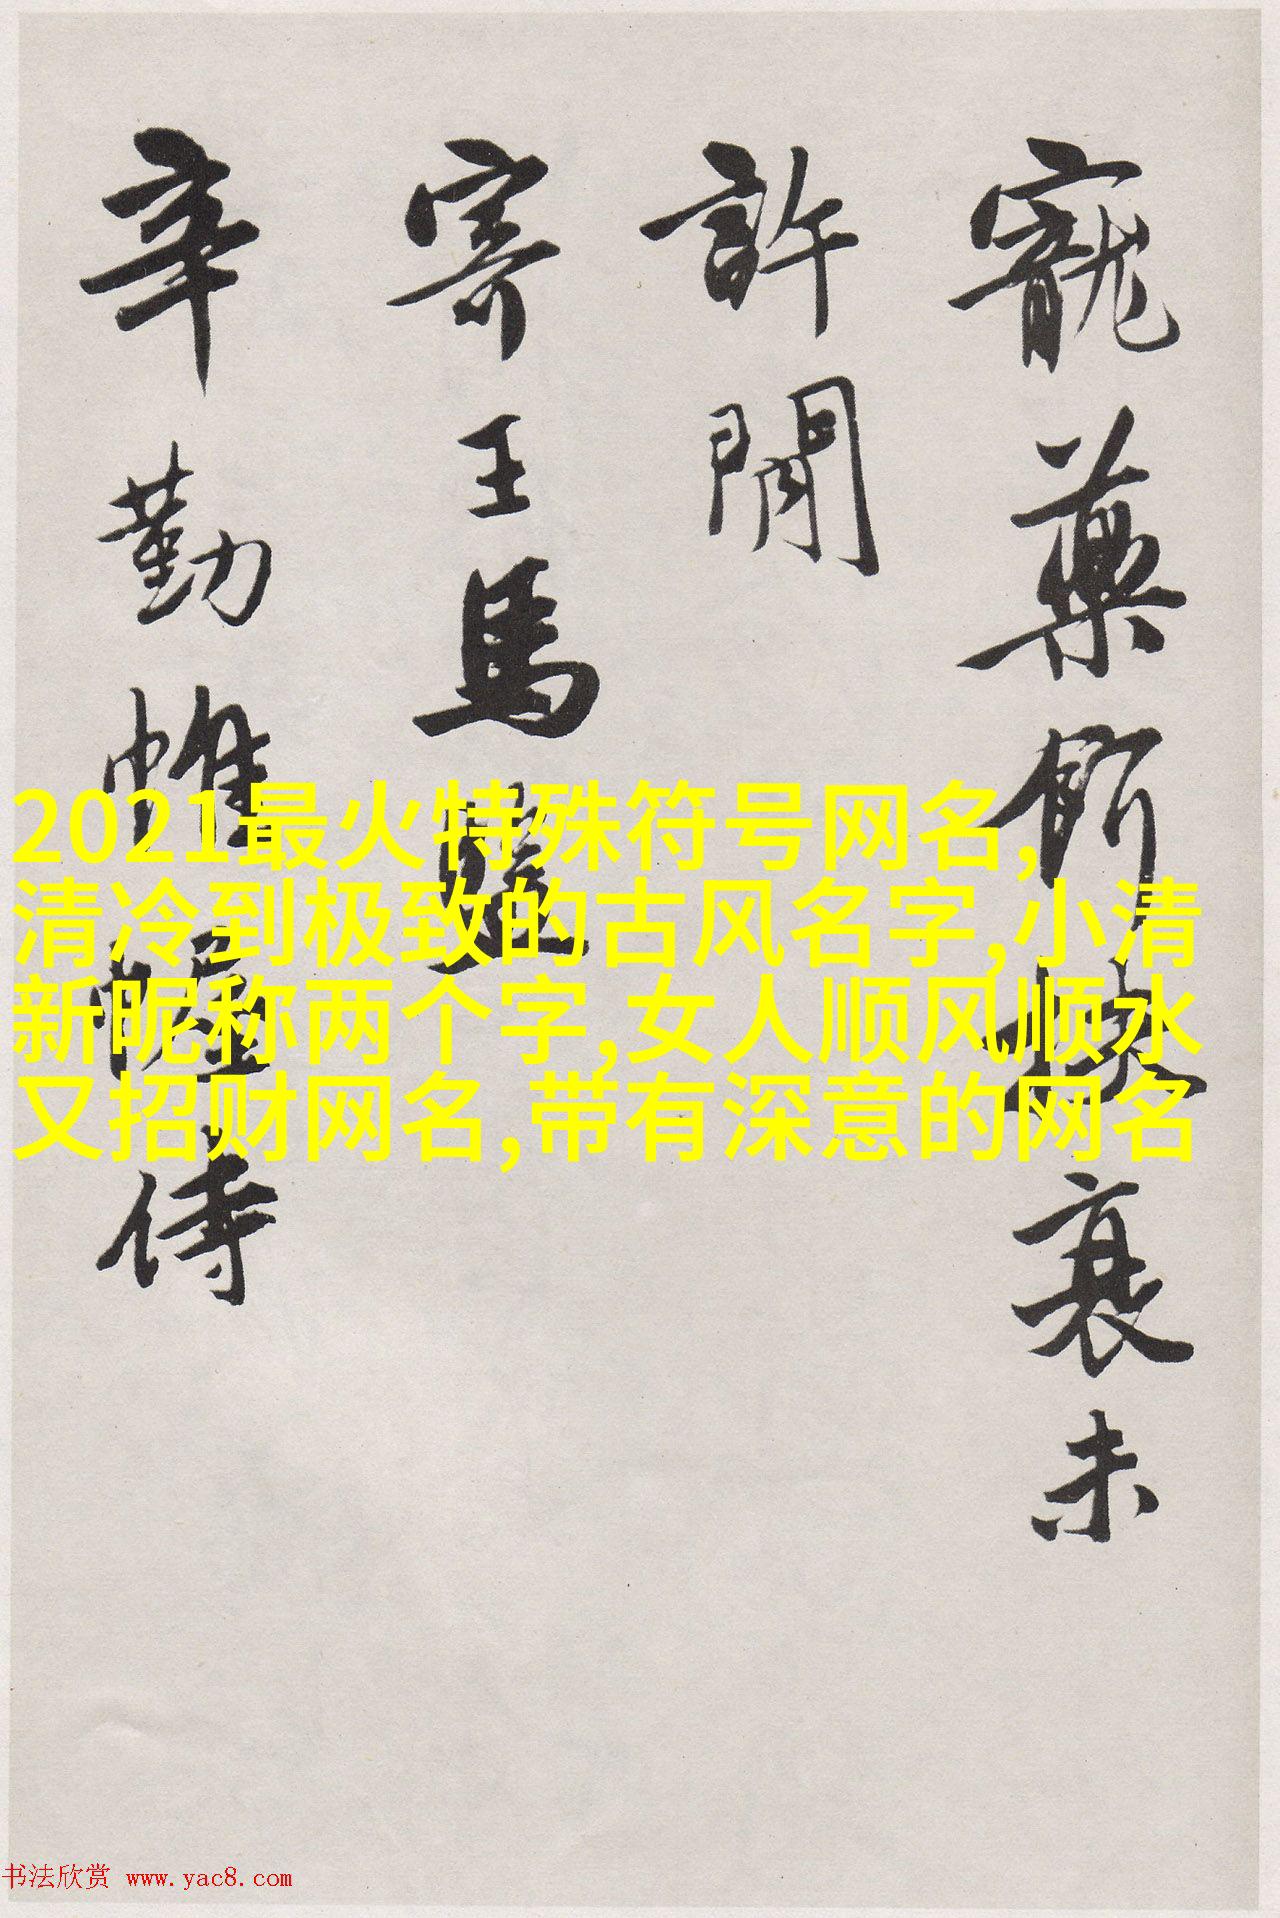 寵藥餌扶衰未
許閒
寄王馬
辛勤帷幄侍
2021最火特殊符号网名,
清冷到极致的古风名字,小清
新昵称两个字,女人顺风顺水
又招财网名,带有深意的网名
书法欣赏 www.yac8.com